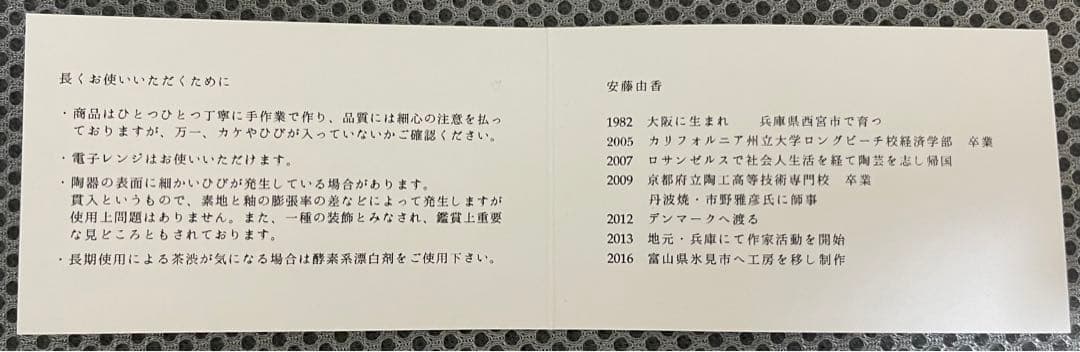 長くお使いいただくために
・商品はひとつひとつ丁寧に手作業で作り、品質には細心の注意を払っ
ておりますが、万一、カケやひびが入っていないかご確認ください。
・電子レンジはお使いいただけます。
・陶器の表面に細かいひびが発生している場合があります。
貫入というもので、素地と釉の膨張率の差などによって発生しますが
使用上問題はありません。また、一種の装飾とみなされ、鑑賞上重要
な見どころともされております。
・長期使用による茶渋が気になる場合は酵素系漂白剤をご使用下さい。
安藤由香
1982 大阪に生まれ 兵庫県西宮市で育つ
2005 カリフォルニア州立大学ロングビーチ校経済学部 卒業
2007 ロサンゼルスで社会人生活を経て陶芸を志し帰国
2009 京都府立陶工高等技術専門校 卒業
丹波焼・市野雅彦氏に師事
2012 デンマークへ渡る
2013 地元・兵庫にて作家活動を開始
2016 富山県氷見市へ工房を移し制作